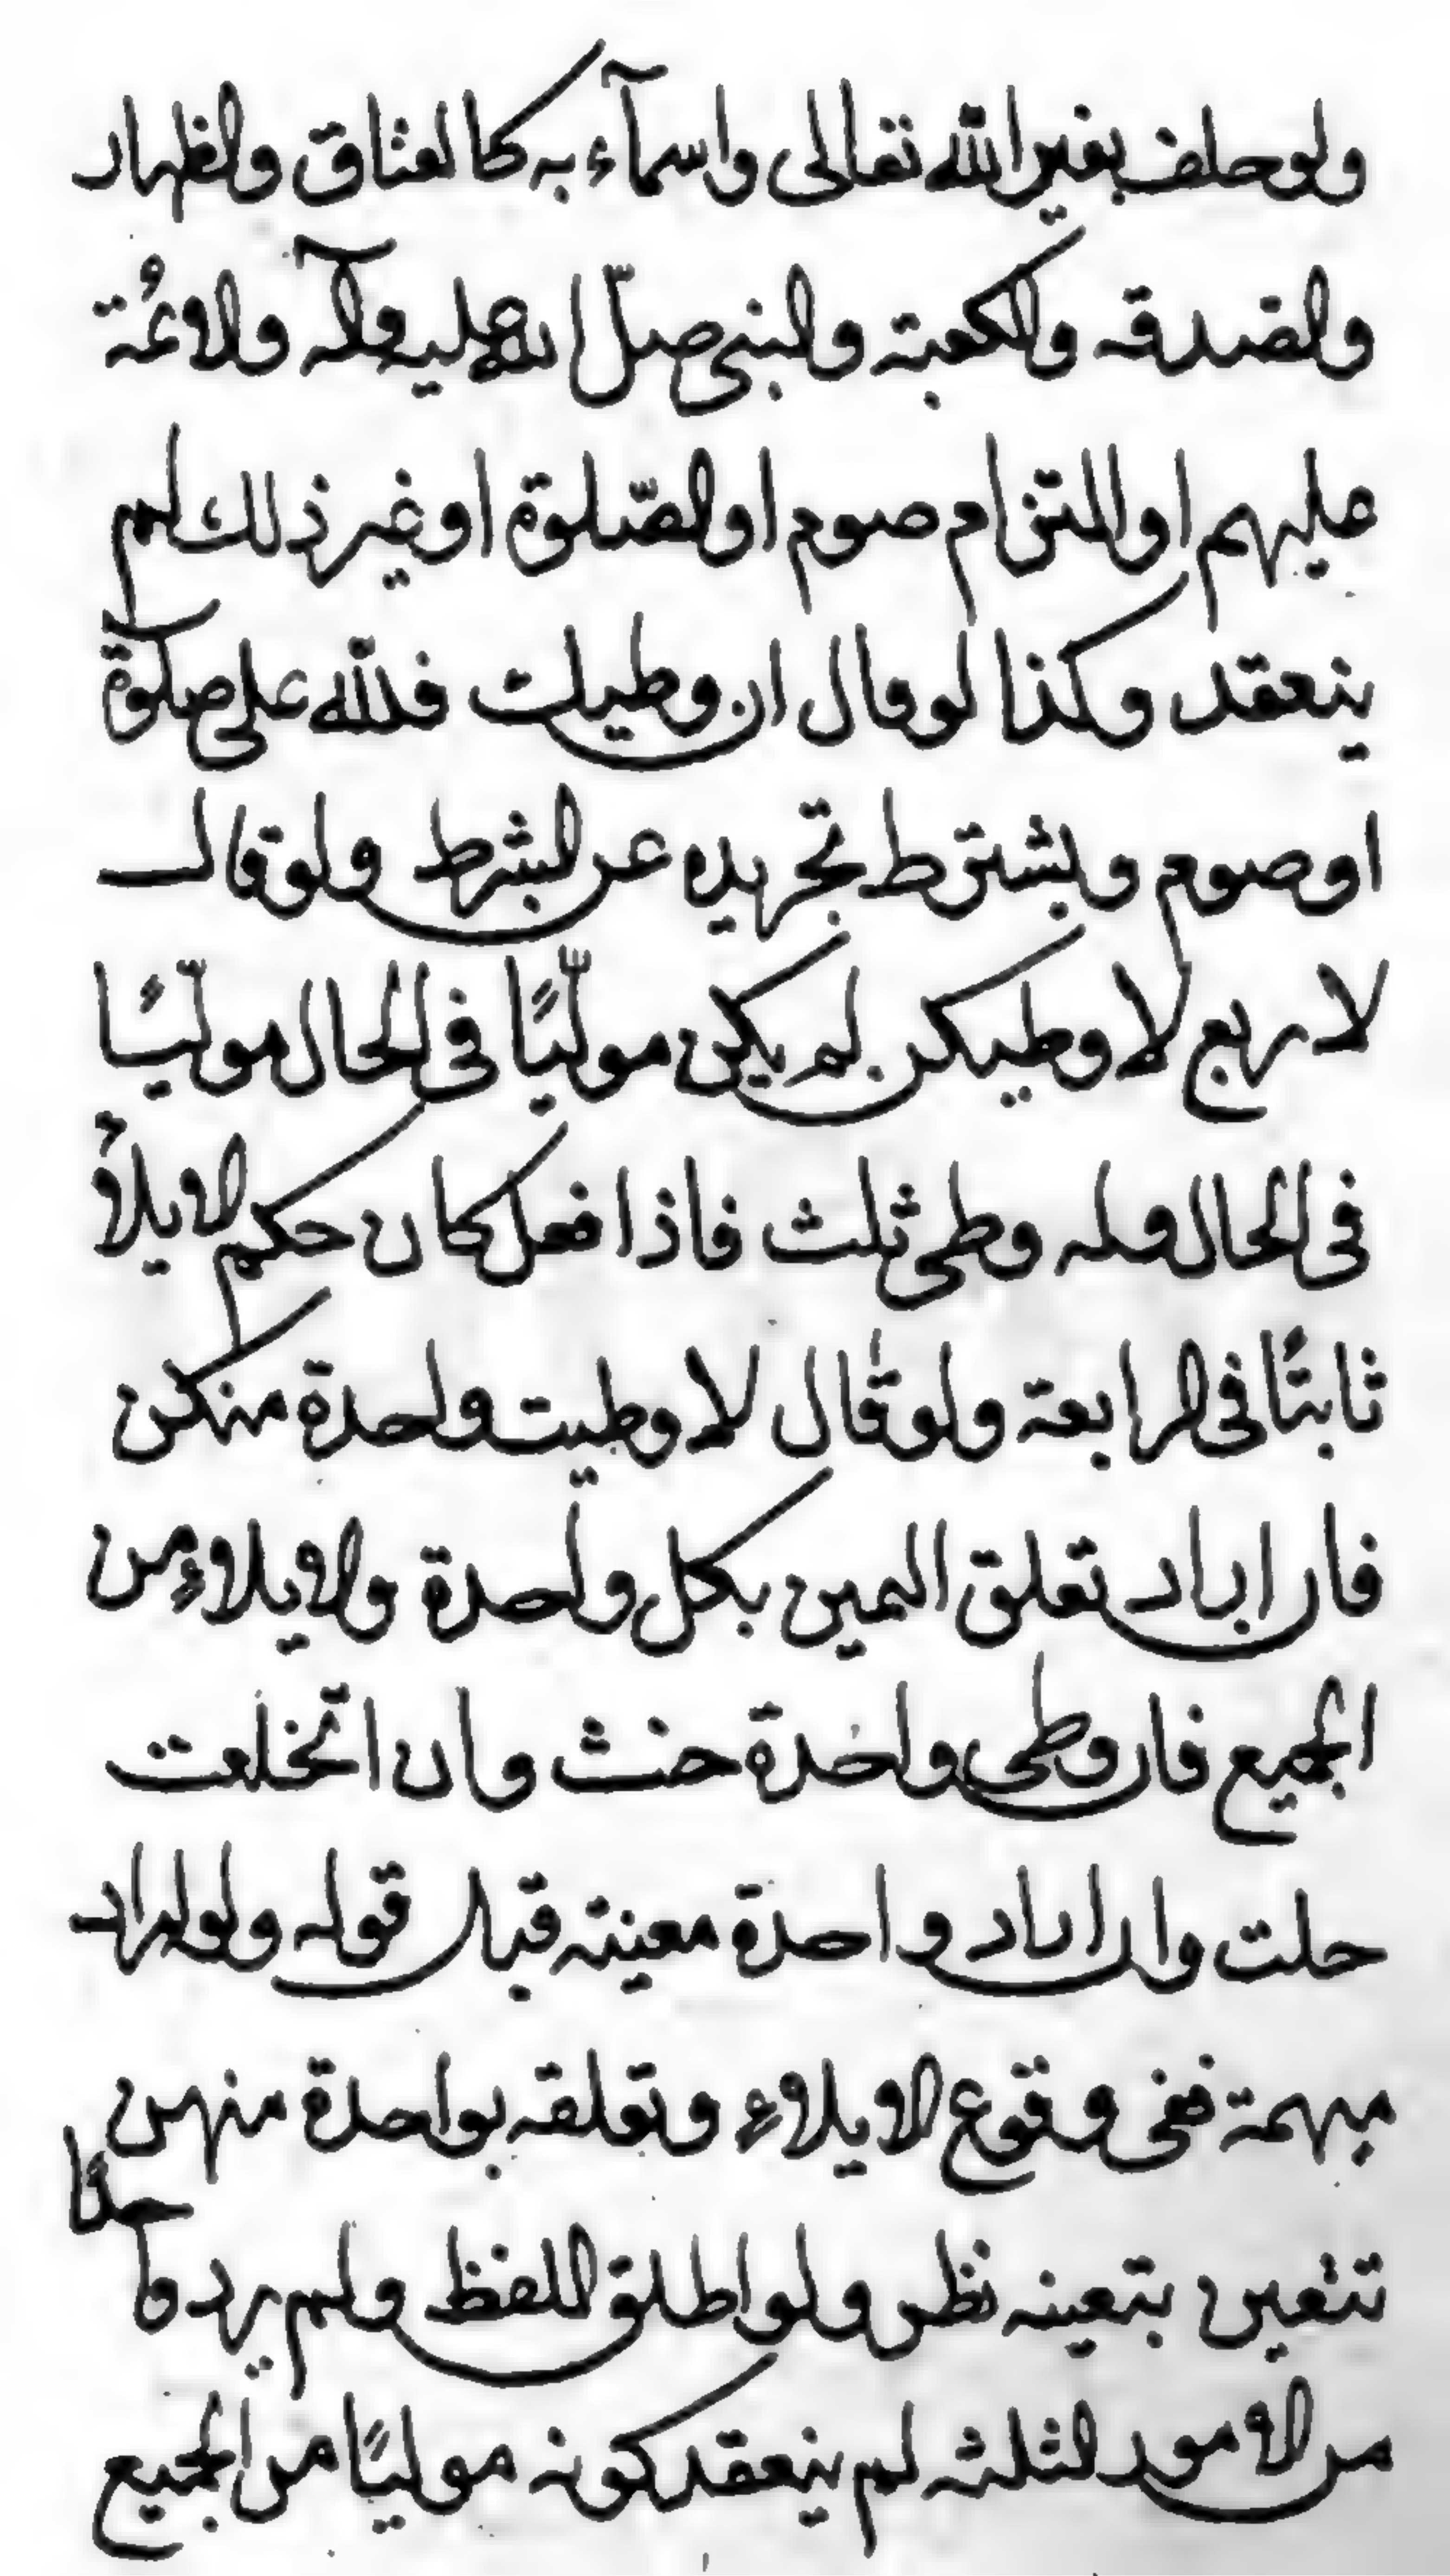 ولو حلف بغير الله تعالى واسمآء به كالعتاق والظهار
والصدقه والكعبة والنبى صلّى الله عليه وآله والائمة
عليهم او التزام صوم او الصّلوة او غير ذلك لم
ينعقد وكذا لو قال ان وطيت فلله على صلوة
او صوم ويشترط تجريده عن الشرط ولو قال
لاربع لا وطيتكن لم يكن موليًّا فى الحال موليًّا
فى الحال وله وطى ثلث فاذا فعل كان حكم الايلاء
ثابتًا فى الرابعة ولو قال لا وطيت واحدة منكن
فان اراد تعلق اليمين بكل واحدة والايلاء من
الجميع فان وطى واحدة حنث وان اتخلعت
حلت وان اراد واحدة معينة قبل قوله ولو اراد
مبهمة ففى وقوع الايلاء وتعلقه بواحدة منهن
تتعين بتعينه نظر ولو اطلق اللفظ ولم يرد واحدًا
من الامور الثلثه لم ينعقد كونه موليًا من الجميع